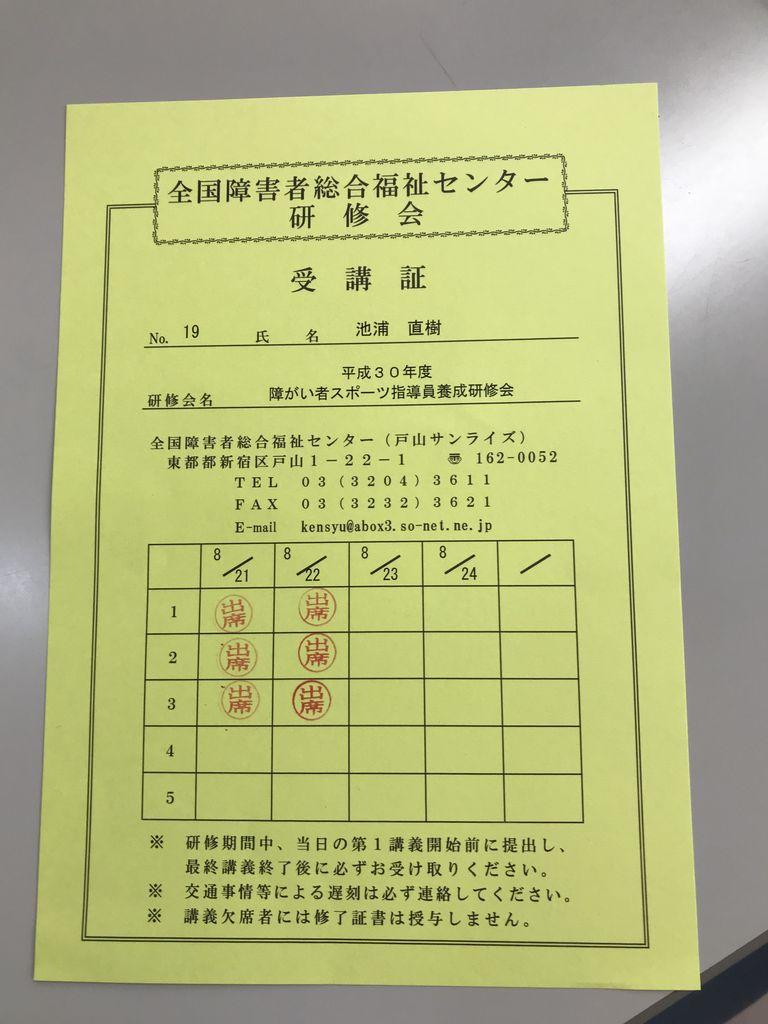 全国障害者総合福祉センター
研修会
受講証
No. 19 氏名 池浦 直樹
平成30年度
研修会名 障がい者スポーツ指導員養成研修会
全国障害者総合福祉センター(戸山サンライズ)
東都都新宿区戸山1-22-1 〠 162-0052
TEL 03(3204)3611
FAX 03(3232)3621
E-mail kensyu@abox3.so-net.ne.jp
8/21 8/22 8/23 8/24 /
1 出席 出席
2 出席 出席
3 出席 出席
4
5
※ 研修期間中、当日の第1講義開始前に提出し、
最終講義終了後に必ずお受け取りください。
※ 交通事情等による遅刻は必ず連絡してください。
※ 講義欠席者には修了証書は授与しません。